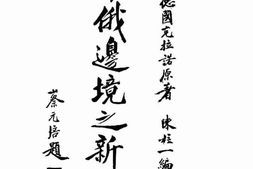 德國克拉諾原著 陳柱一編
俄邊境之新
蔡元培題